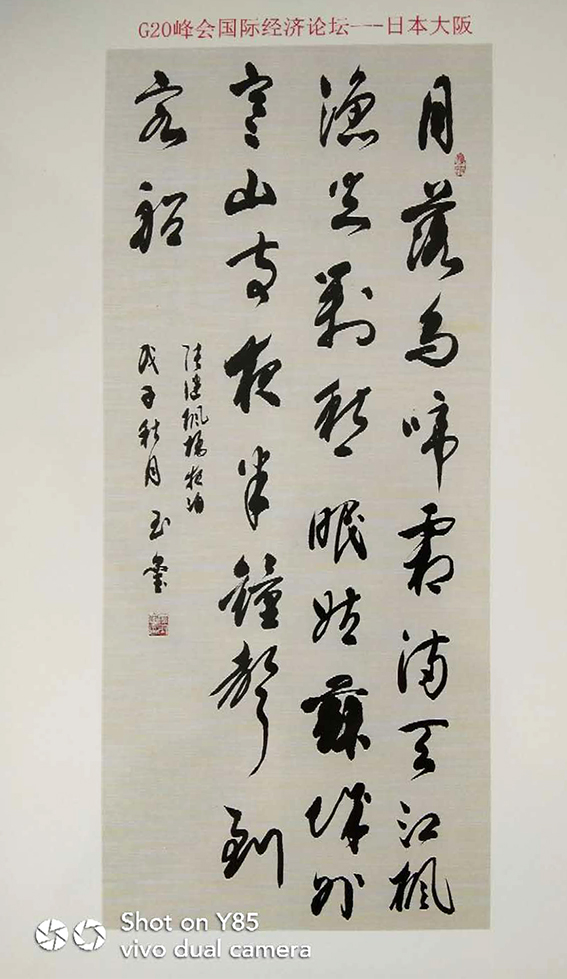 G20峰会国际经济论坛---日本大阪
月落乌啼霜满天江枫
渔火对愁眠姑苏城外
寒山寺夜半钟声到
客船
张继枫桥夜泊
戊子秋月玉玺
Shot on Y85
vivo dual camera